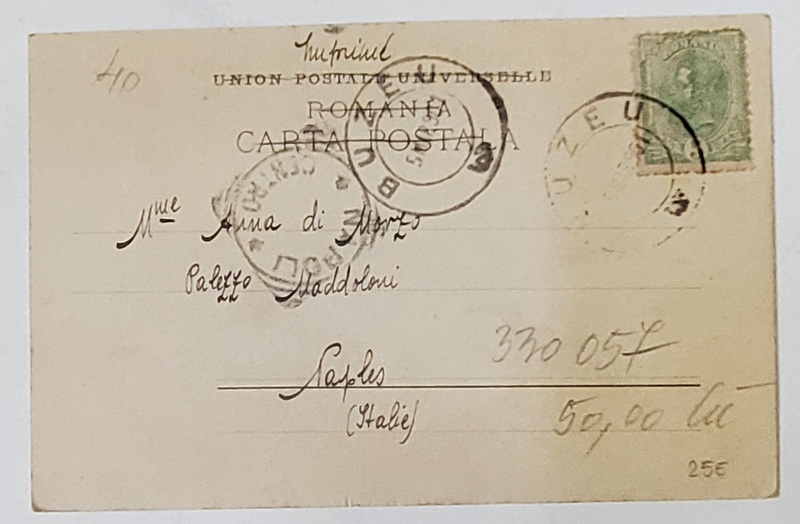 Imprimé
40
UNION POSTALE UNIVERSELLE
ROMANIA
CARTA POSTALA
BUZEU
3
UZEU
3
CENTRO
NAPOLI
Mme Anna di Morzo
Palezzo Maddoloni
Naples
(Italie)
330 057
50,00 lei
25€